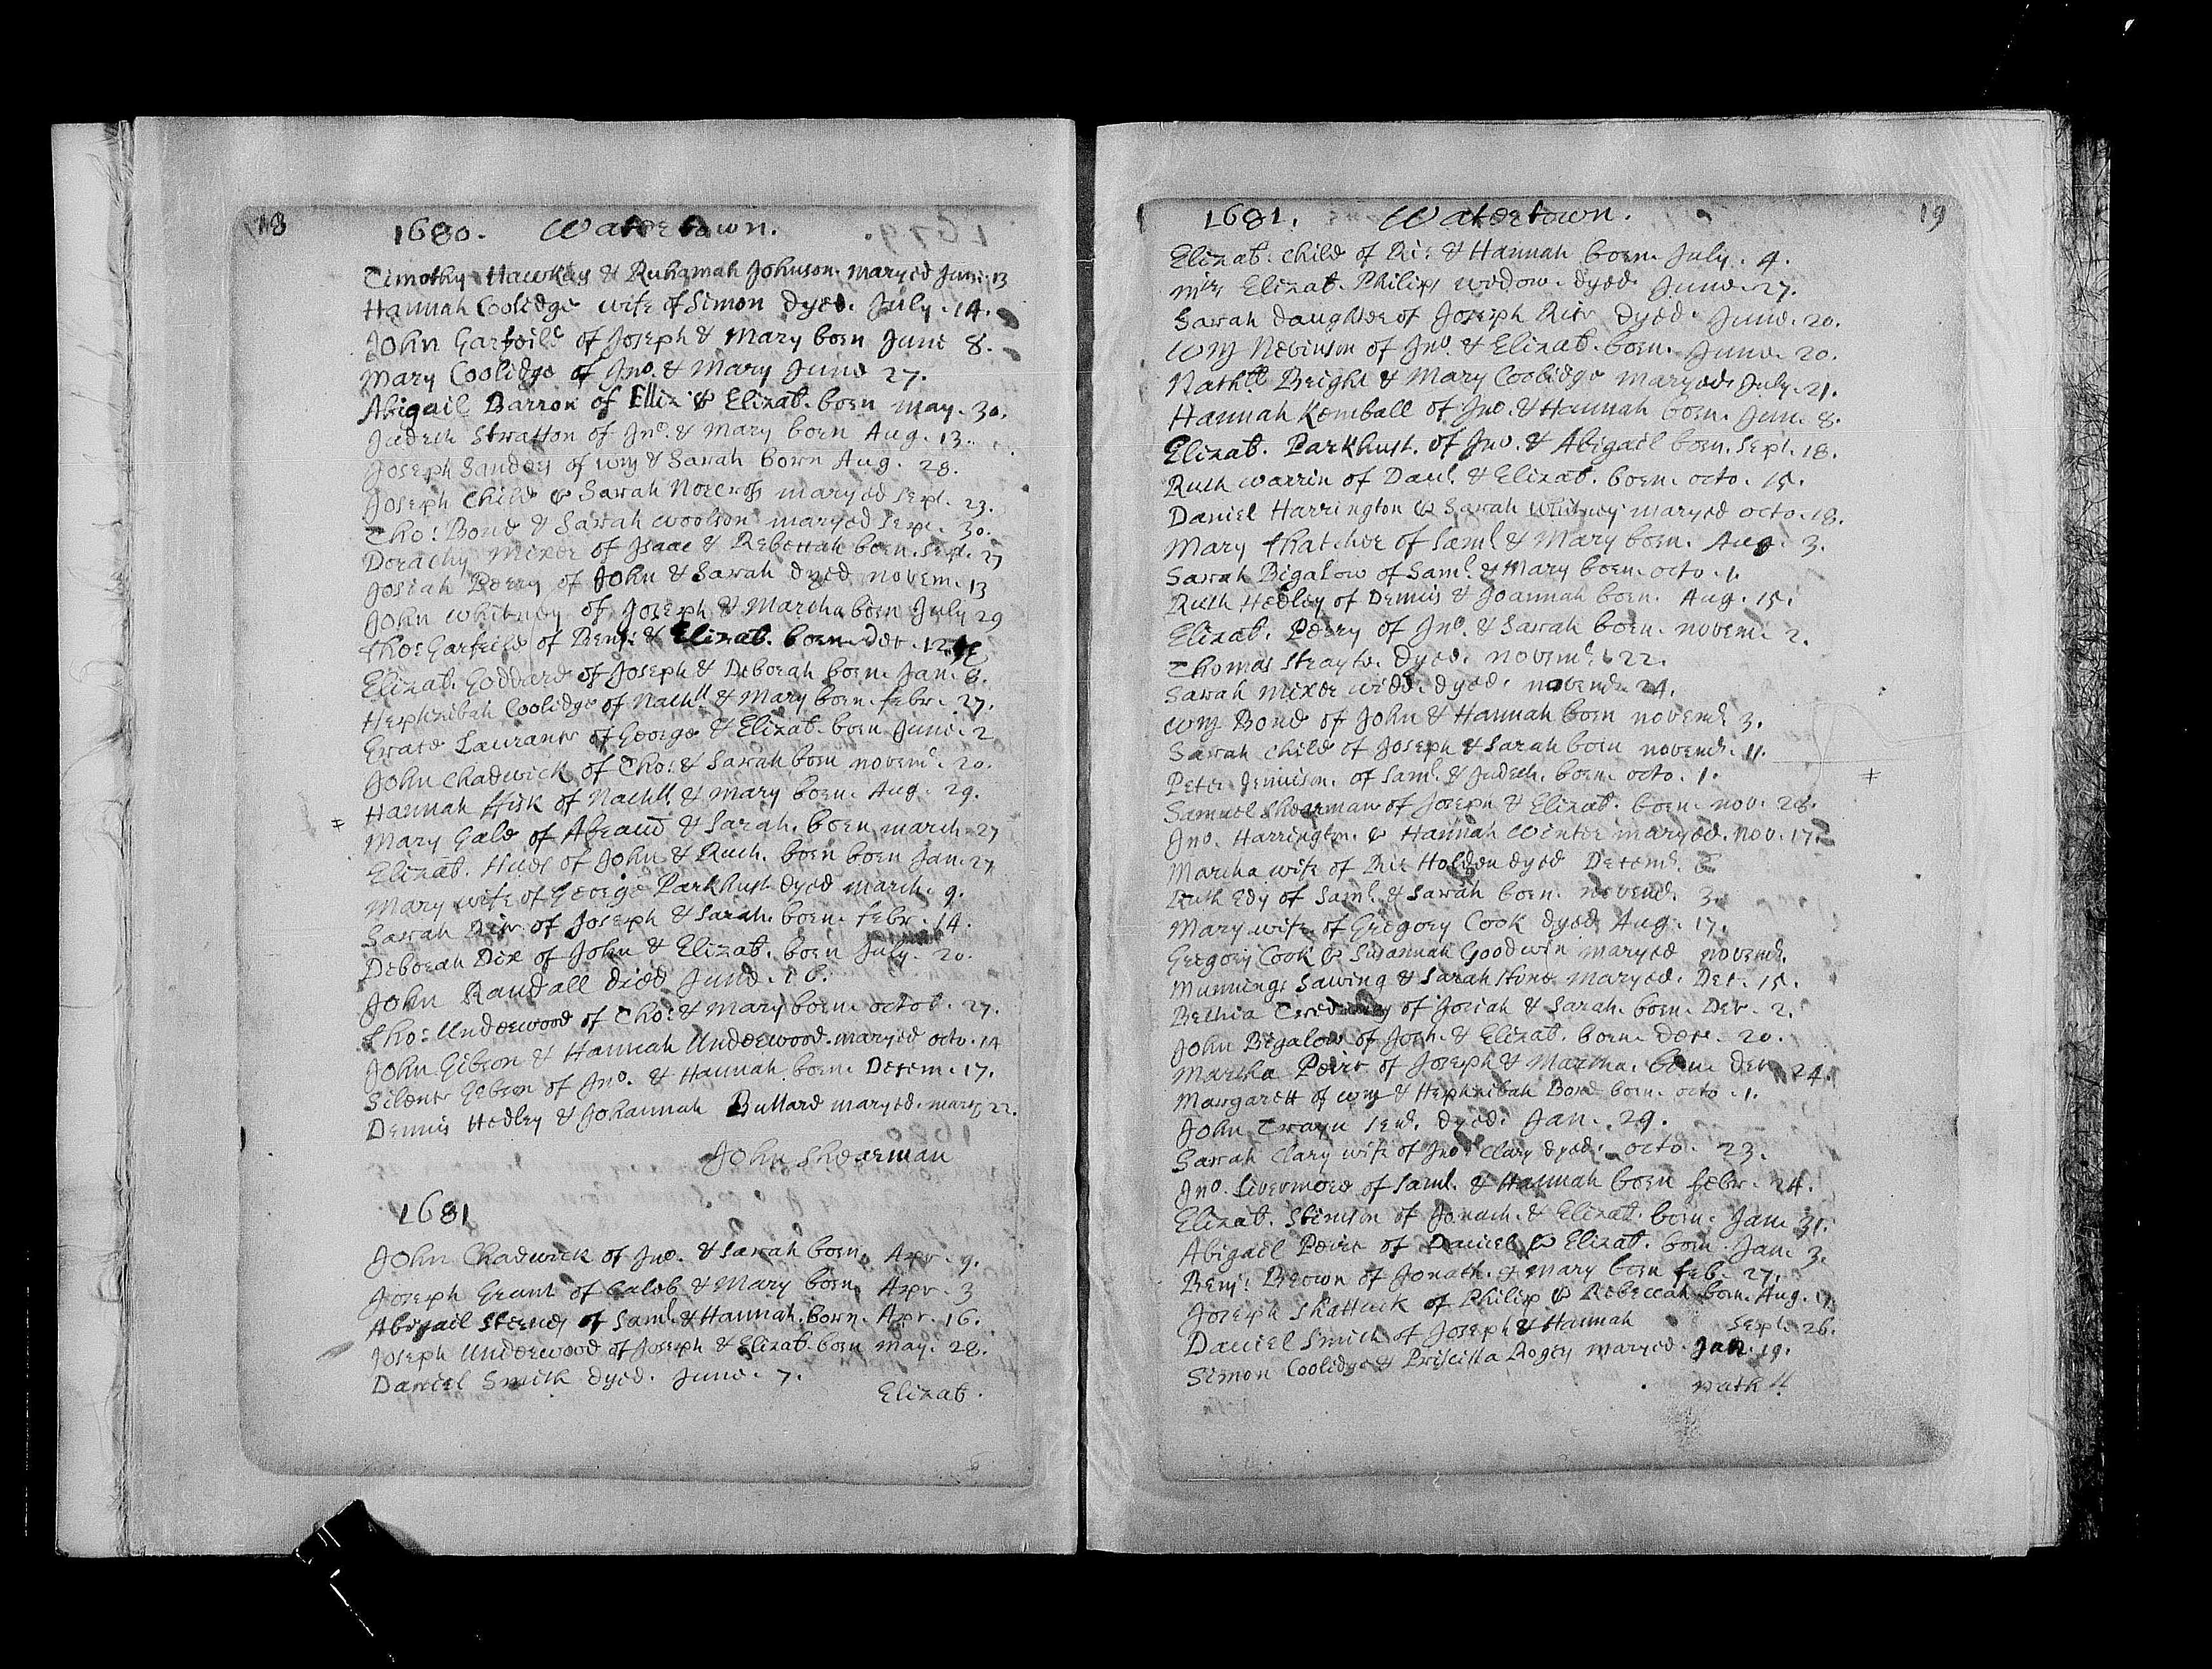 18
1680. Watertown.
Timothy Hawkins & Ruhamah Johnson. maryed June. 13
Hannah Coolidge wife of Simon Dyed. July. 14.
John Garfeild of Joseph & Mary born June 8.
Mary Coolidge of Jno. & Mary June 27.
Abigail Barron of Elliz & Elizab. born may. 30.
Judeth Stratton of Jno. & Mary born Aug. 13.
Joseph Sanders of Wm & Sarah born Aug. 28.
Joseph Child & Sarah Norcross maryed Sept. 23.
Tho: Bond & Sarah Woolson maryed Sept. 30.
Dorathy Mixer of Isaac & Rebeccah born. Sept. 27
Josiah Perry of John & Sarah dyed novem. 13
John Whitney of Joseph & Martha born July 29
Tho: Garfeild of Benj: & Elizab. born Dec. 12
Elizab. Goddard of Joseph & Deborah born. Jan. 8.
Hephzibah Coolidge of Nathll & Mary born. febr. 27.
Grace Laurance of George & Elizab. born June. 2
John Chadwick of Tho: & Sarah born novem. 20.
Hannah ffisk of Nathll. & Mary born. Aug. 29.
Mary Gale of Abraam & Sarah. born march. 27
Elizab. Hides of John & Ruth. born born Jan. 27
Mary wife of George Parkhust dyed march. 9.
Sarah Dix of Joseph & Sarah. born. febr. 14.
Deborah Dix of John & Elizab. born July. 20.
John Randall died June. 16.
Tho: Underwood of Tho: & Mary born octob. 27.
John Gibson & Hannah Underwood. maryed octo. 14
Silence Gibson of Jno. & Hannah born. Decem. 17.
Dennis Hedley & Johannah Bullard maryed. 22.
John Shearman
1681
John Chadwick of Jno. & Sarah born. Apr. 9.
Joseph Grant of Caleb & Mary born Apr. 3
Abigail Sternes of Saml. & Hannah. born. Apr. 16.
Joseph Underwood of Joseph & Elizab. born may. 28.
Daniel Smith dyed. June. 7.
Elizab.
19
1681. Watertown.
Elizab. Child of Ric: & Hannah born. July. 4.
mrs Elizab. Philips widow. dyed. June. 27.
Sarah daughter of Joseph Rice dyed. June. 20.
Wm Nevinson of Jno. & Elizab. born. June. 20.
Nathll Bright & Mary Coolidge maryed July. 21.
Hannah Kemball of Jno. & Hannah born. June. 8.
Elizab. Parkhust. of Jno. & Abigail born. Sept. 18.
Ruth Warrin of Danl. & Elizab. born. octo. 15.
Daniel Harrington & Sarah Whitney maryed octo. 18.
Mary Thatcher of Saml. & Mary born. Aug. 3.
Sarah Bigalow of Saml. & Mary born. octo. 1.
Ruth Hedley of Dennis & Joannah born. Aug. 15.
Elizab. Perry of Jno. & Sarah born. novem. 2.
Thomas Strayte. Dyed. novemb. 22.
Sarah Mixer widd. dyed. novemb. 24.
Wm Bond of John & Hannah born novemb. 3.
Sarah Child of Joseph & Sarah born novemb. 11.
Peter Jennison. of Saml. & Judeth. born. octo. 1.
Samuel Shearman of Joseph & Elizab. born. nov. 28.
Jno. Harrington. & Hannah Winter maryed. nov. 17.
Martha wife of Ric Holden dyed Decemb.
Ruth Edy of Saml. & Sarah born. novemb. 3.
Mary wife of Gregory Cook dyed Aug. 17.
Gregory Cook & Susannah Goodwin maryed novemb.
Munnings Sawing & Sarah Stone maryed. Dec. 15.
Bethia of Josiah & Sarah. born. Dec. 2.
John Bigalow of Josh. & Elizab. born. Dece. 20.
Martha Peirc of Joseph & Martha. born. Dec. 24.
Margarett of Wm & Hephzibah Bond born. octo. 1.
John Trayn senr. dyed. Jan. 29.
Sarah Clary wife of Jno. Clary dyed. octo. 23.
Jno. Livermore of Saml. & Hannah born febr. 24.
Elizab. Stimson of Jonath. & Elizab. born. Jan. 31.
Abigail Peirc of Daniel & Elizab. born. Jan. 3.
Benj: Brown of Jonath. & Mary born feb. 27.
Joseph Shattuck of Philip & Rebeccah born. Aug.
Daniel Smith of Joseph & Hannah Sept. 26.
Simon Coolidge & Priscilla Rogers maryed. Jan. 19.
Nathll